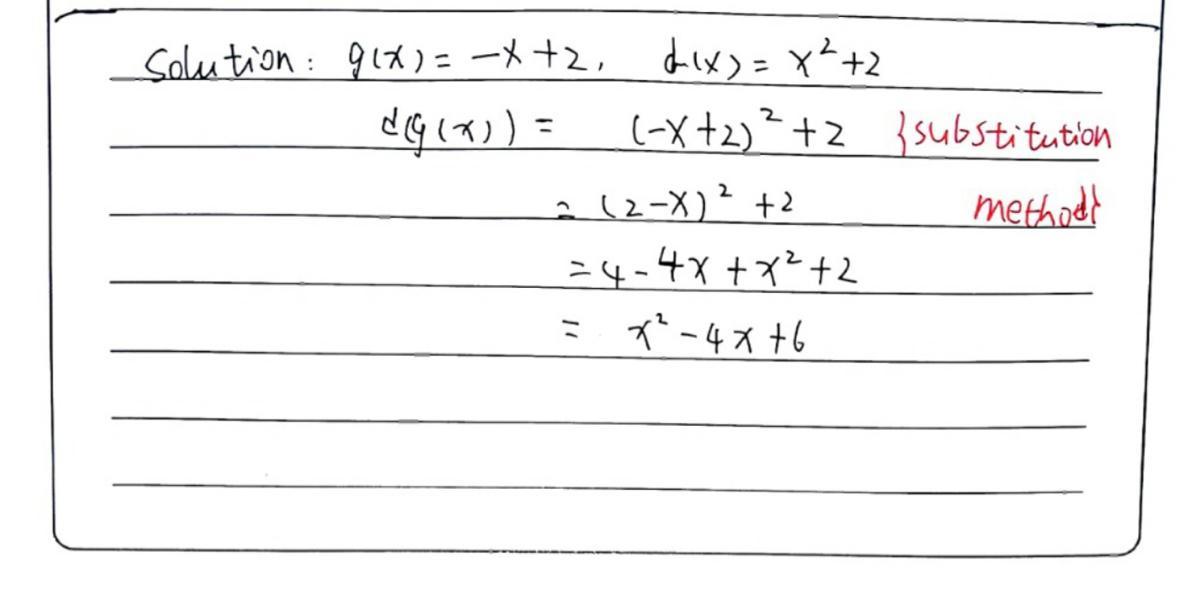 Solution: g(x) = -x+2, d(x) = x²+2
d(g(x)) = (-x+2)²+2 }substitution
= (2-x)² +2 method}
= 4-4x+x²+2
= x²-4x+6